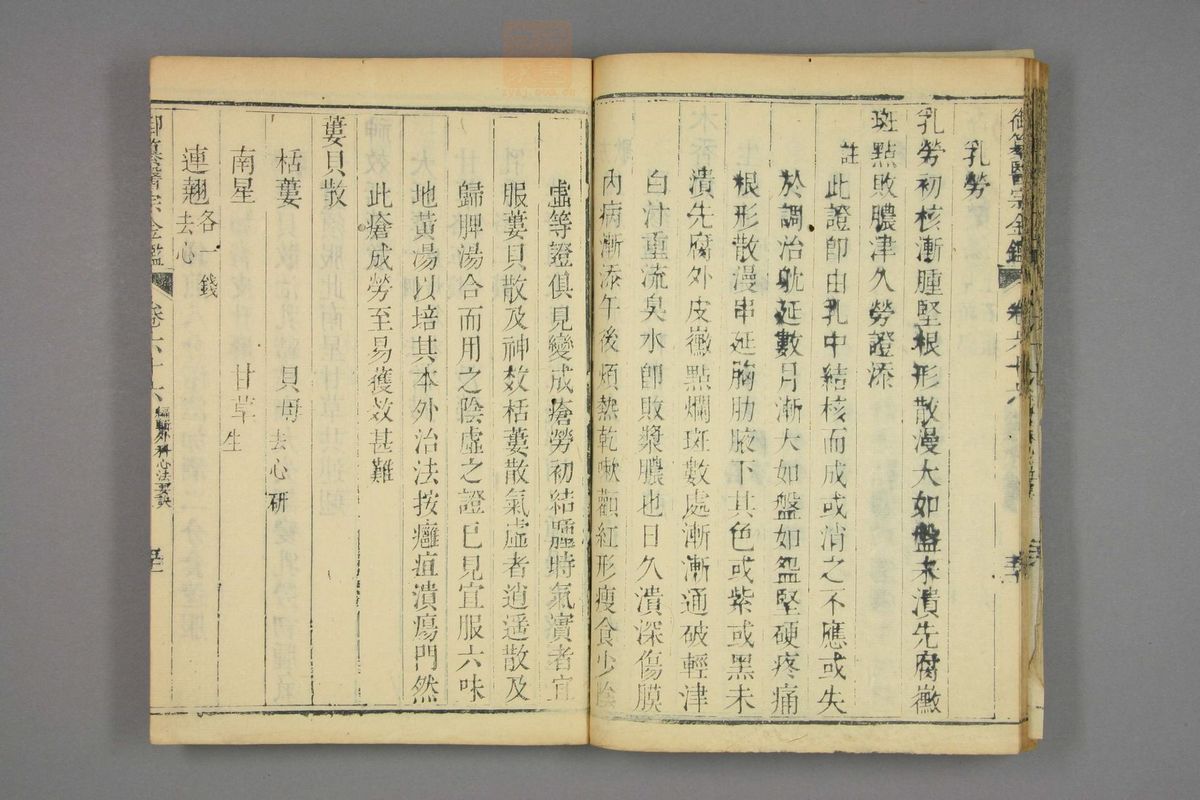 御纂醫宗金鑑 卷六十六
乳勞
乳勞初核漸腫堅根形散漫大如盤未潰先腐黴
斑點敗膿津久勞證添
註
此證即由乳中結核而成或消之不應或失
於調治躭延數月漸大如盤如盌堅硬疼痛
根形散漫串延胸肋腋下其色或紫或黑未
潰先腐外皮黴點爛斑數處漸漸通破輕津
白汁重流臭水即敗漿膿也日久潰深傷膜
內病漸添午後煩熱乾嗽顴紅形瘦食少陰
虛等證俱見變成瘡勞初結腫時氣實者宜
服蔞貝散及神效栝蔞散氣虛者逍遥散及
歸脾湯合而用之陰虛之證已見宜服六味
地黃湯以培其本外治法按癰疽潰瘍門然
此瘡成勞至易獲效甚難
蔞貝散
栝蔞 貝母去心研
南星 甘草生
連翹去心各一錢
御纂醫宗金鑑 卷六十六 編輯外科心法要訣